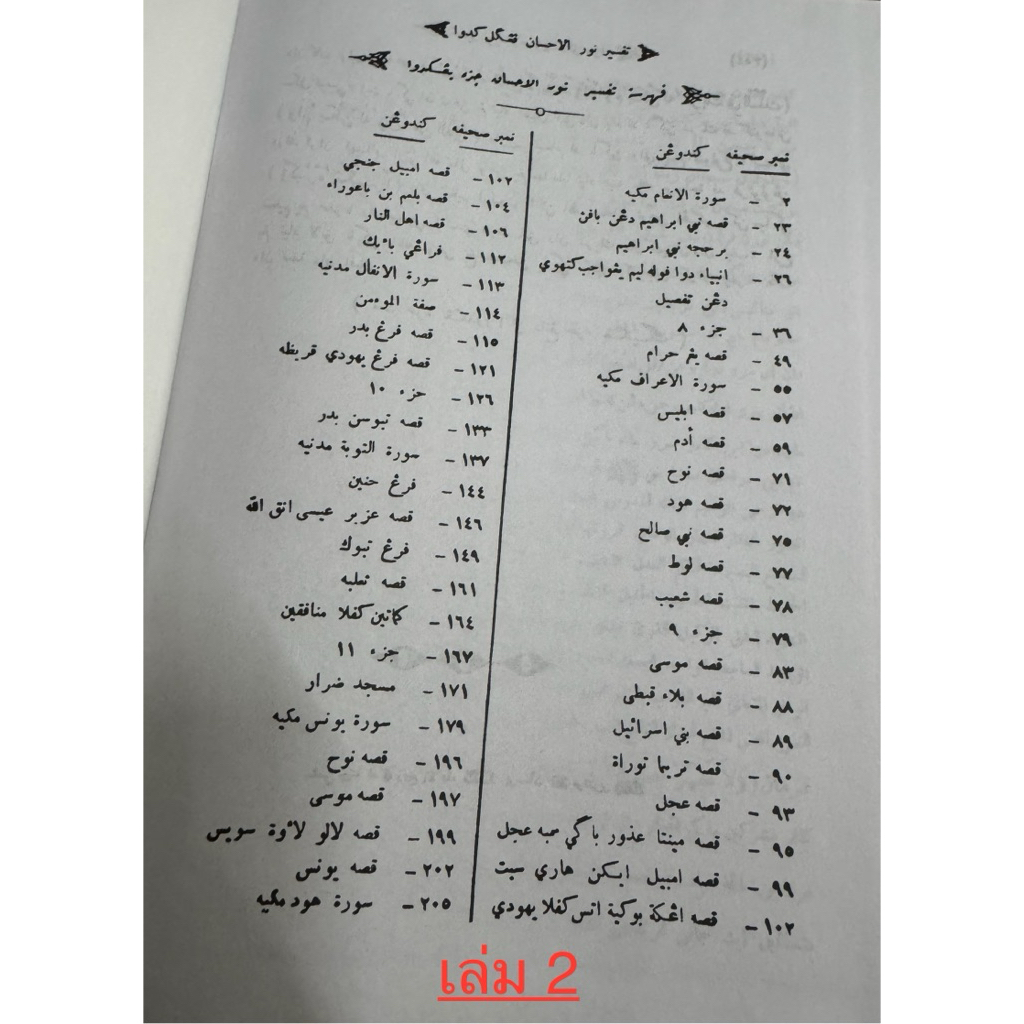 تفسير نور الاحسان ڤڠݢل كدوا
فهرسة تفسير نور الاحسان جزء يڠكدوا
نمبر صحيفه كندوڠن
٢ – سورة الانعام مكيه
٢٣ – قصه نبي ابراهيم دڠن بافن
٢٤ – برحجه نبي ابراهيم
٢٦ – انبياء دوا فوله ليم يڠواجب كتهوي
دڠن تفصيل
٣٦ – جزء ٨
٤٩ – قصه يڠ حرام
٥٥ – سورة الاعراف مكيه
٥٧ – قصه ابليس
٥٩ – قصه أدم
٧١ – قصه نوح
٧٢ – قصه هود
٧٥ – قصه نبي صالح
٧٧ – قصه لوط
٧٨ – قصه شعيب
٧٩ – جزء ٩
٨٣ – قصه موسى
٨٨ – قصه بلاء قبطى
٨٩ – قصه بني اسرائيل
٩٠ – قصه تريما توراة
٩٣ – قصه عجل
٩٥ – قصه مينتا عذور باݢي سمبه عجل
٩٩ – قصه امبيل ايكن هاري سبت
١٠٢ – قصه اڠكة بوكية اتس كفلا يهودي
نمبر صحيفه كندوڠن
١٠٢ – قصه امبيل جنجي
١٠٤ – قصه بلعم بن باعوراء
١٠٦ – قصه اهل النار
١١٢ – فراڠي بائيك
١١٣ – سورة الانفال مدنيه
١١٤ – صفة الموءمن
١١٥ – قصه فرڠ بدر
١٢١ – قصه فرڠ يهودي قريظه
١٢٦ – جزء ١٠
١٣٣ – قصه تبوسن بدر
١٣٧ – سورة التوبة مدنيه
١٤٤ – فرڠ حنين
١٤٦ – قصه عزير عيسى انق الله
١٤٩ – فرڠ تبوك
١٦١ – قصه ثعلبه
١٦٤ – كماتين كفلا منافقين
١٦٧ – جزء ١١
١٧١ – مسجد ضرار
١٧٩ – سورة يونس مكيه
١٩٦ – قصه نوح
١٩٧ – قصه موسى
١٩٩ – قصه لالو لاوة سويس
٢٠٢ – قصه يونس
٢٠٥ – سورة هود مكيه
เล่ม 2